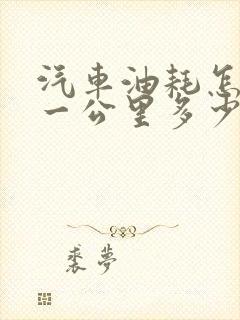 汽車油耗怎
一公里多少
裘夢